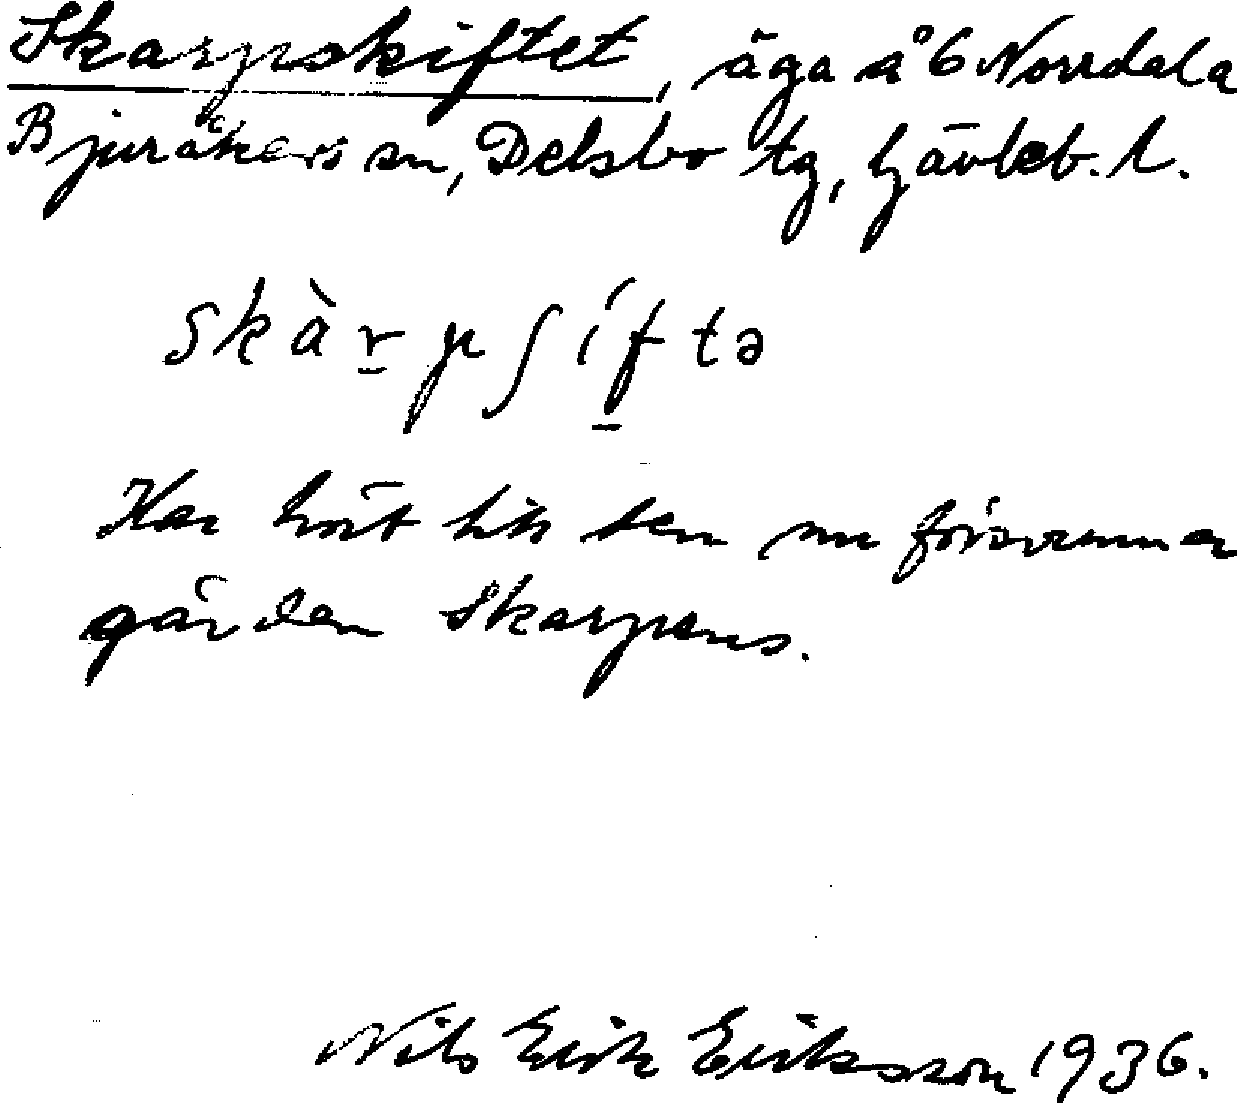 Skarpskiftet, äga å 6 Norrdala
Bjuråkers sn, Delsbo tg, Gävleb. l.
skàrpʃíftə
Har hört till den nu försvunna
gården Skarpens.
Nils Erik Eriksson 1936.